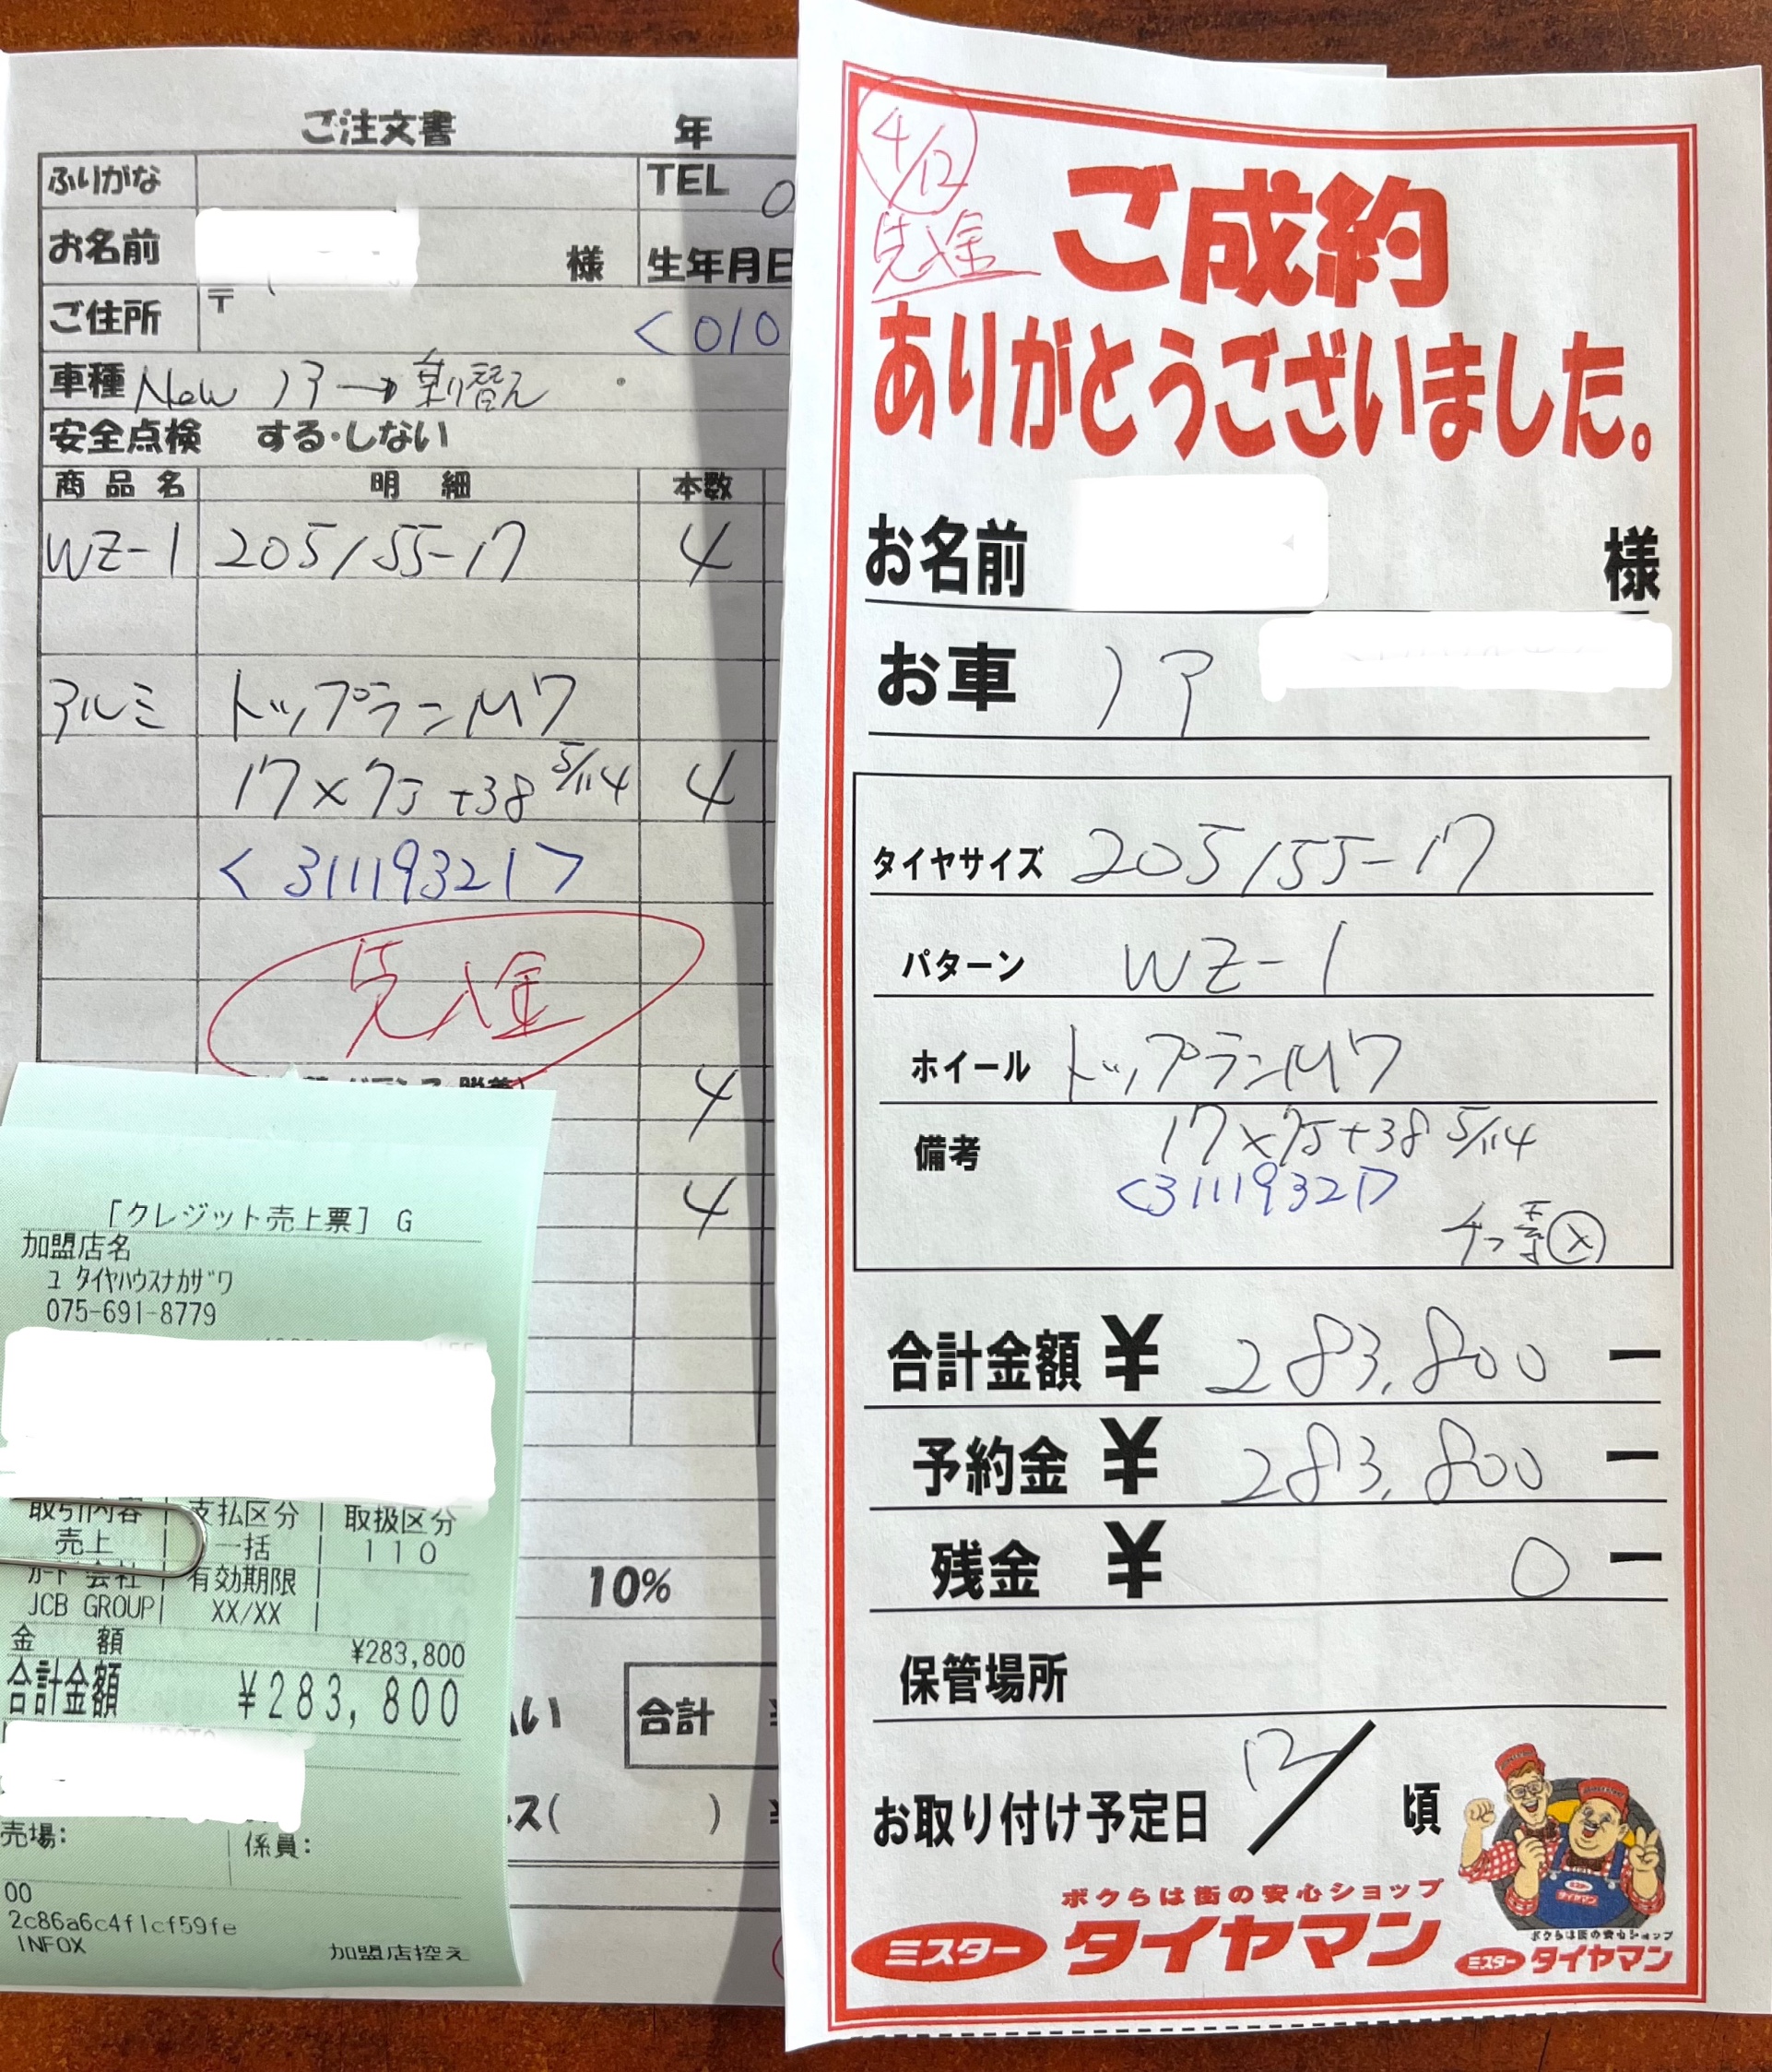 ご注文書 年
ふりがな TEL 0
お名前 様 生年月日
ご住所 〒 <010
車種 New ノア→乗り替え
安全点検 する・しない
商品名 明細 本数
WZ-1 205/55-17 4
アルミ トップランM7
17×7J+38 5/114 4
<31119321>
先入金
4
4
10%
合計 ¥
ス( ) ¥
[クレジット売上票] G
加盟店名
ユ タイヤハウスナカザワ
075-691-8779
取引内容 支払区分 取扱区分
売上 一括 110
カード会社 有効期限
JCB GROUP XX/XX
金額 ¥283,800
合計金額 ¥283,800
売場: 係員:
00
2c86a6c4f1cf59fe
INFOX 加盟店控え
4/12
先入金
ご成約
ありがとうございました。
お名前 様
お車 ノア
タイヤサイズ 205/55-17
パターン WZ-1
ホイール トップランM7
備考 17×7J+38 5/114
<31119321>
合計金額 ¥ 283,800 ー
予約金 ¥ 283,800 ー
残金 ¥ 0 ー
保管場所
お取り付け予定日 12/ 頃
ボクらは街の安心ショップ
ミスター タイヤマン
ボクらは街の安心ショップ
ミスター タイヤマン